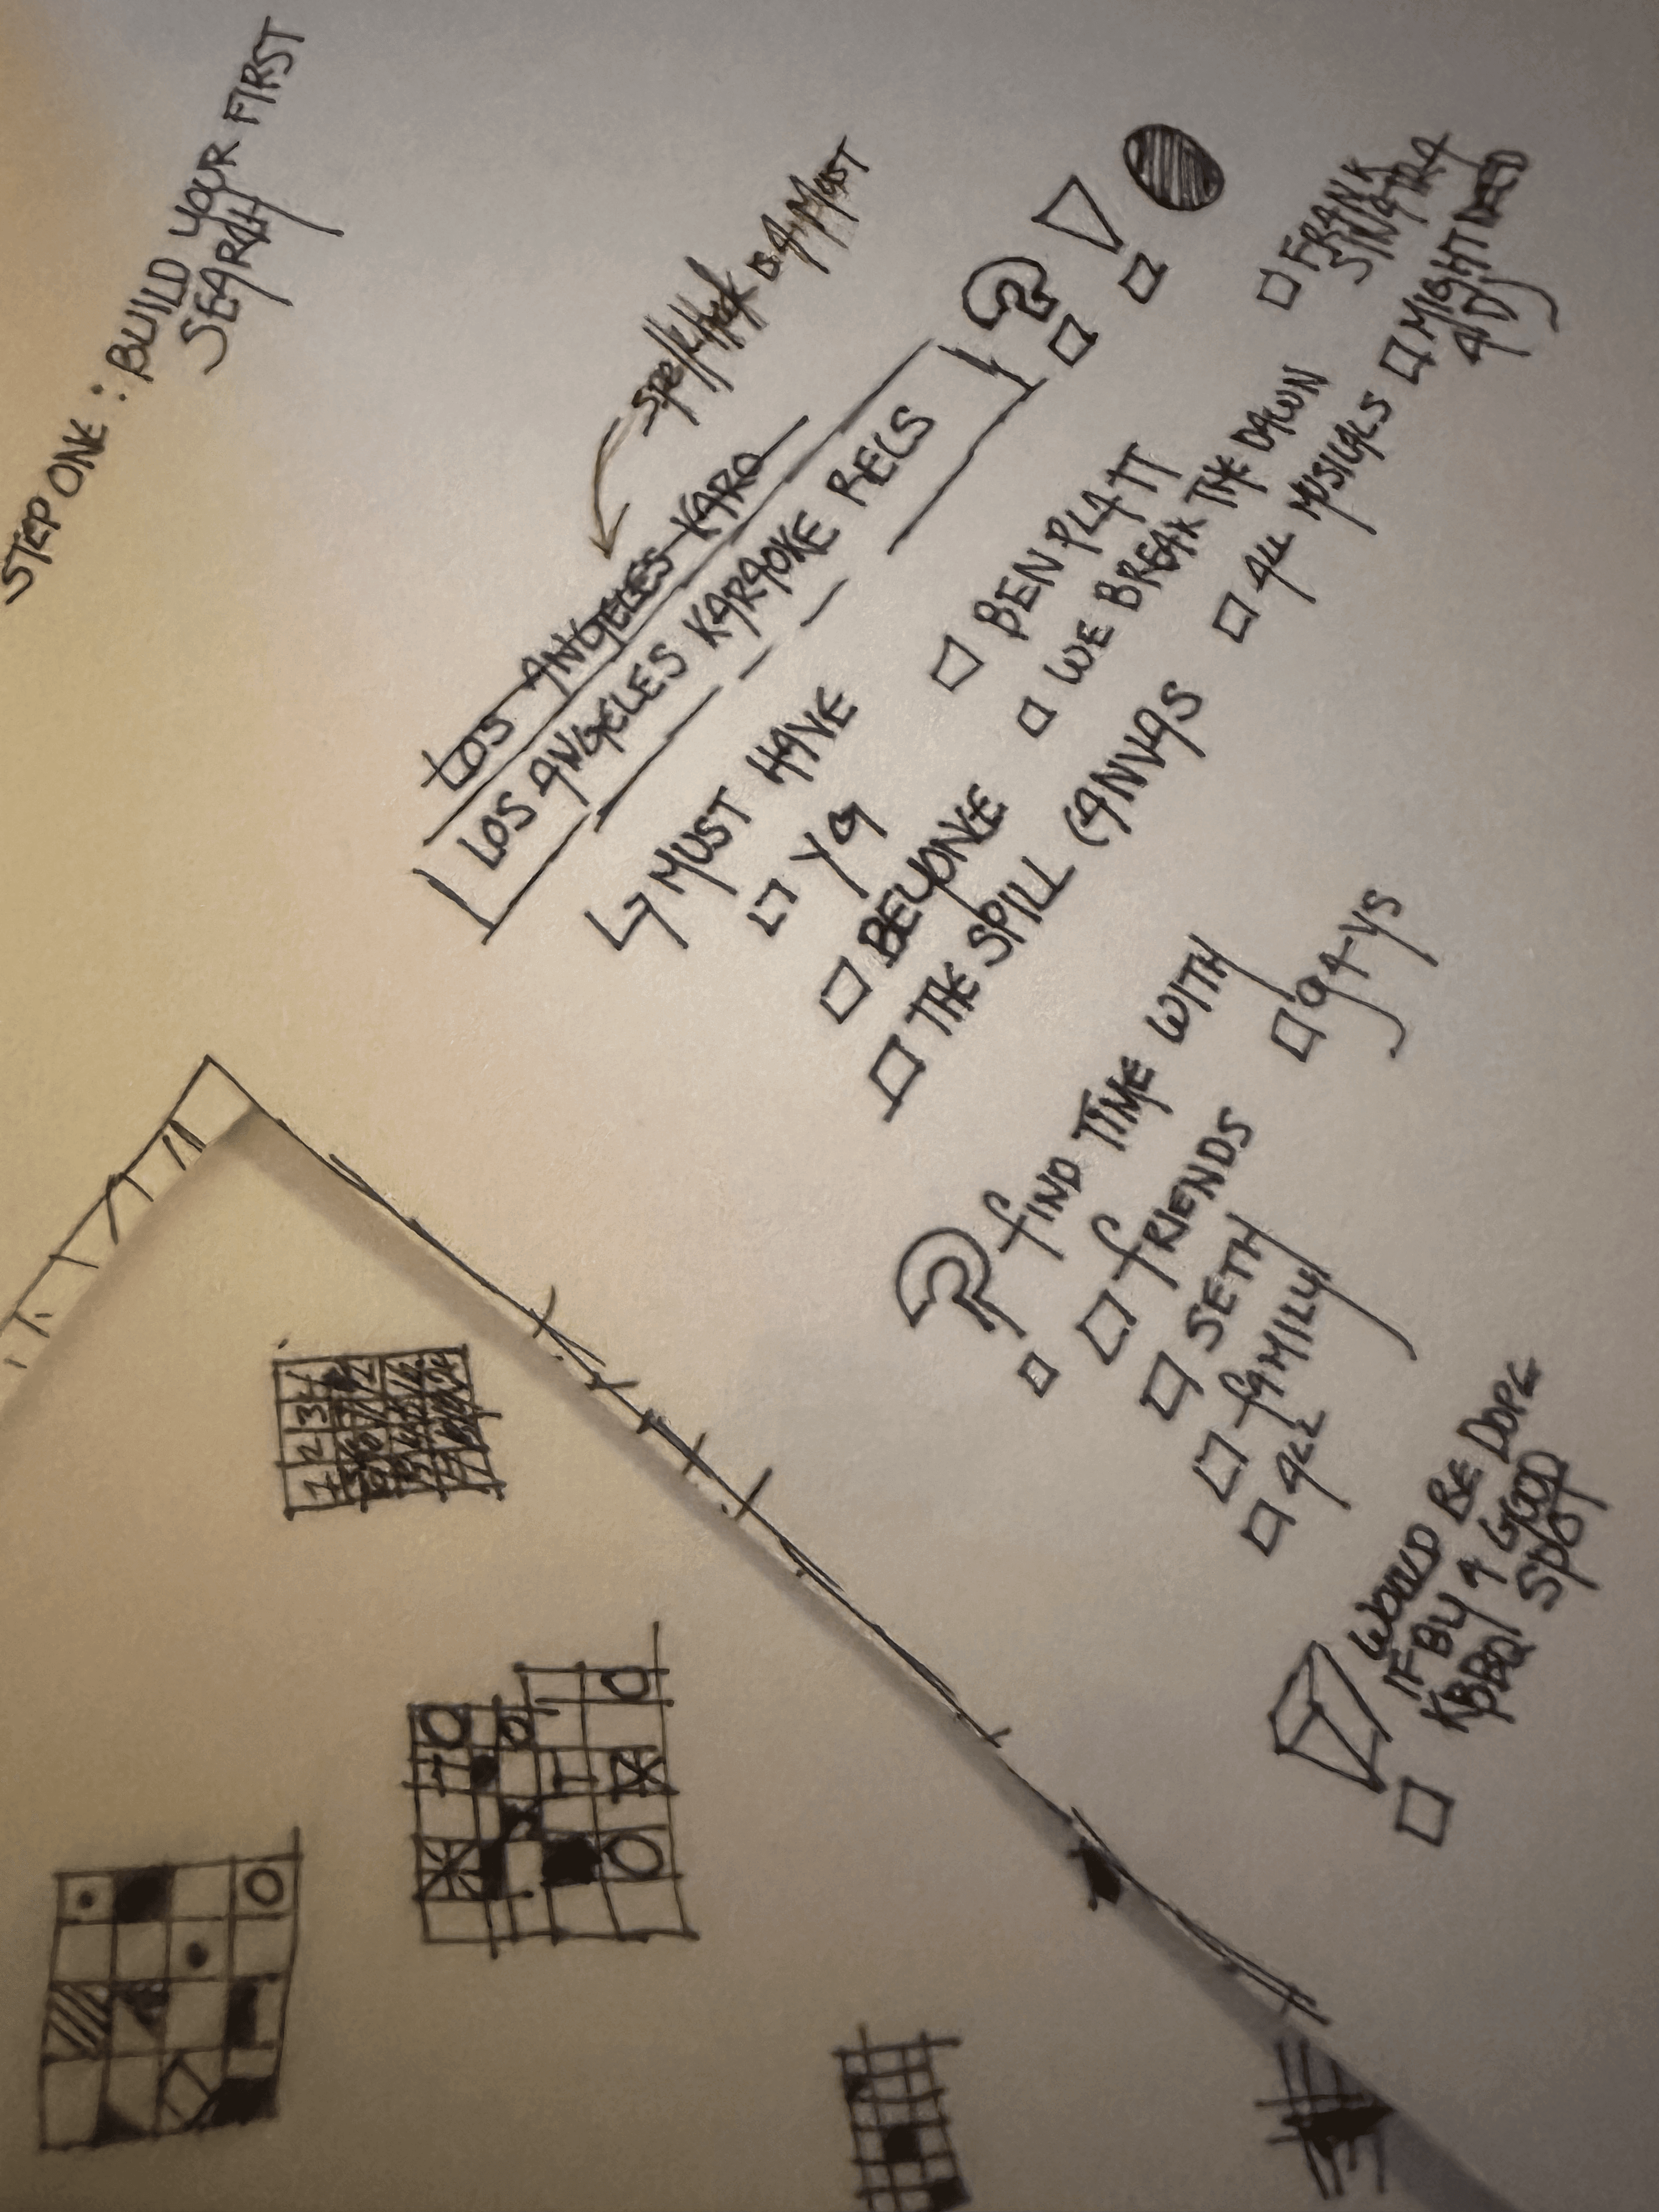 STEP ONE : BUILD YOUR FIRST
SEARCH
IS A MUST
LOS ANGELES KARO
LOS ANGELES KARAOKE RECS
MUST HAVE
YG
BEN PLATT
FRANK
SINATRA
BEYONCE
WE BREAK THE DAWN
THE SPILL CANVAS
ALL MUSICALS
MIGHT NEED
A DJ
? FIND TIME WITH
FRIENDS
ga-ys
SETH
FAMILY
ALL
WOULD BE DOPE
IF BY A GOOD
KBBQ SPOT
1 2 3